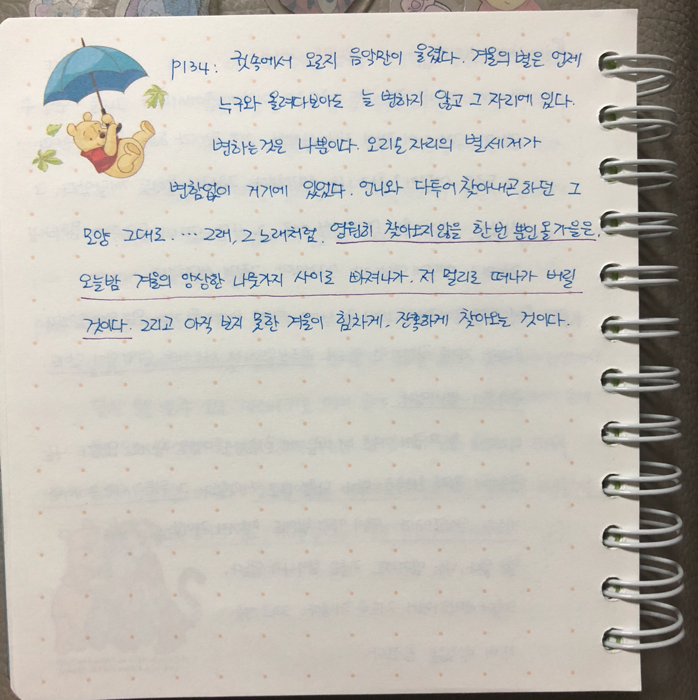 P134: 귓속에서 오로지 음악만이 울렸다. 겨울의 별은 언제
누구와 올려다보아도 늘 변하지 않고 그 자리에 있다.
변하는것은 나뿐이다. 오리온 자리의 별 세개가
변함없이 거기에 있었다. 언니와 다투어 찾아내곤 하던 그
모양 그대로. … 그래, 그 노래처럼, 영원히 찾아오지 않을 한 번 뿐인 올 가을은,
오늘밤 겨울의 앙상한 나뭇가지 사이로 빠져나가, 저 멀리로 떠나가 버릴
것이다. 그리고 아직 보지 못한 겨울이 힘차게, 정확하게 찾아오는 것이다.